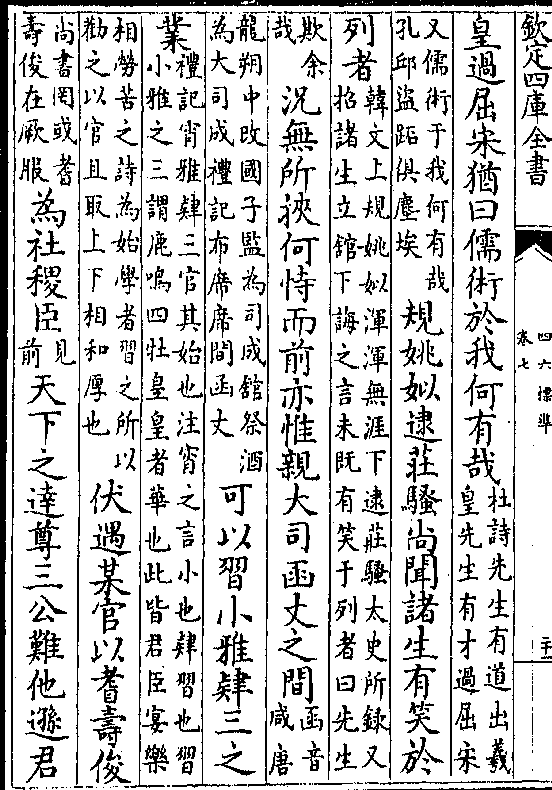 欽定四庫全書
四六標準
卷七
皇過屈宋猶曰儒術於我何有哉
杜詩先生有道出羲
皇先生有才過屈宋
又儒術于我何有哉
孔邱盜跖俱塵埃
規姚姒逮莊騷尚聞諸生有笑於
列者
韓文上規姚姒渾渾無涯下逮莊騷太史所録又
招諸生立舘下誨之言未既有笑于列者曰先生
欺余
哉
況無所挾何恃而前亦惟親大司函丈之間
函音
咸唐
龍朔中改國子監為司成舘祭酒
為大司成禮記布席席間函丈
可以習小雅肄三之
業
禮記宵雅肄三官其始也注宵之言小也肄習也習
小雅之三謂鹿鳴四牡皇皇者華也此皆君臣宴樂
相勞苦之詩為始學者習之所以
勸之以官且取上下相和厚也
伏遇某官以耆壽俊
尚書罔或耆
壽俊在厥服
為社稷臣
見
前
天下之達尊三公難他遜君